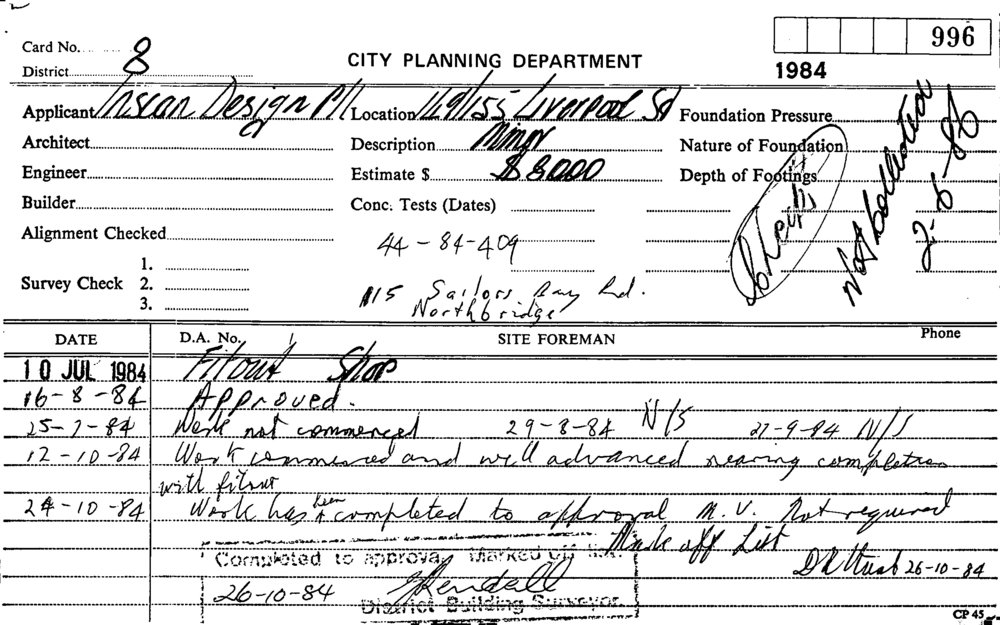 996
Card No. 8
District
CITY PLANNING DEPARTMENT
1984
Applicant Inscan Design P/L Location 149/155 Liverpool St Foundation Pressure
Architect Description Minor Nature of Foundation
Engineer Estimate $ $ 8000 Depth of Footings
Builder Conc. Tests (Dates)
Alignment Checked
44-84-409
Not Collected
2-8-86
Survey Check 1.
2.
3.
115 Sailors Bay Rd.
Northbridge
DATE D.A. No. SITE FOREMAN Phone
10 JUL 1984 Fitout Shop
16-8-84 Approved.
25-7-84 Work not commenced 29-8-84 N/S 27-9-84 N/S
12-10-84 Work commenced and well advanced nearing completion
with fitout
24-10-84 Work has been completed to approval M.V. Not required
Mark off List
26-10-84
Completed to approval Marked off
26-10-84 Kendall
District Building Surveyor.
CP 45